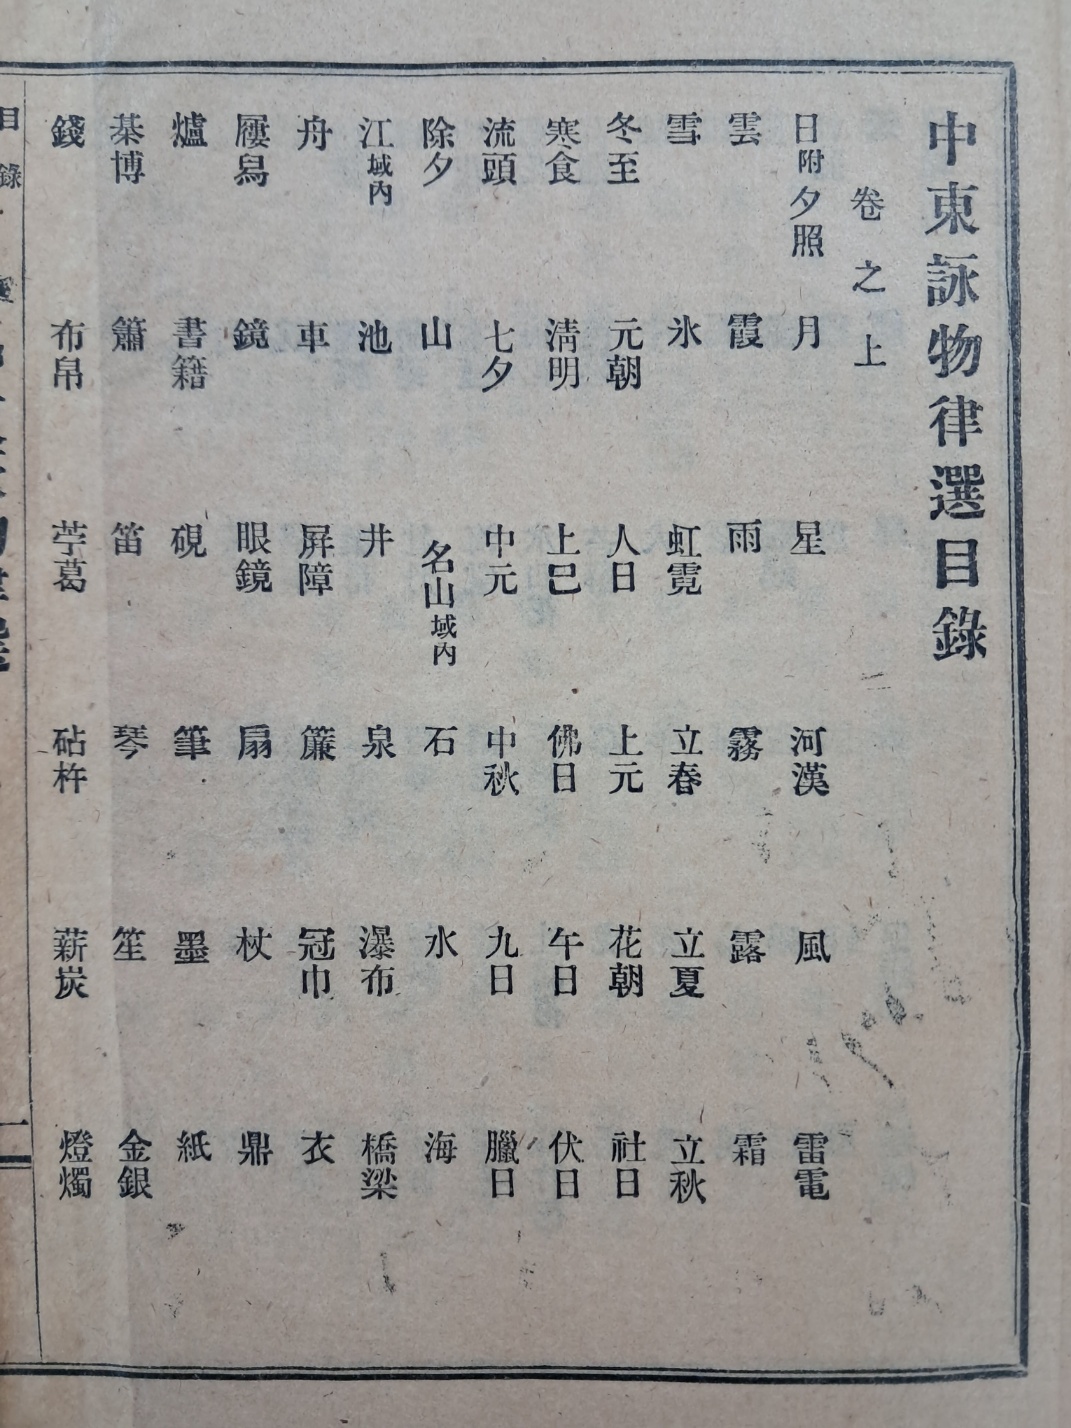 中東詠物律選目錄
卷之上
日附夕照 月 星 河漢 風 雷電
雲 霞 雨 霧 露 霜
雪 氷 虹霓 立春 立夏 立秋
冬至 元朝 人日 上元 花朝 社日
寒食 淸明 上巳 佛日 午日 伏日
流頭 七夕 中元 中秋 九日 臘日
除夕 山 名山域內 石 水 海
江域內 池 井 泉 瀑布 橋梁
舟 車 屛障 簾 冠巾 衣
屨舃 鏡 眼鏡 扇 杖 鼎
爐 書籍 硯 筆 墨 紙
棊博 簫 笛 琴 笙 金銀
錢 布帛 苧葛 砧杵 薪炭 燈燭
目錄